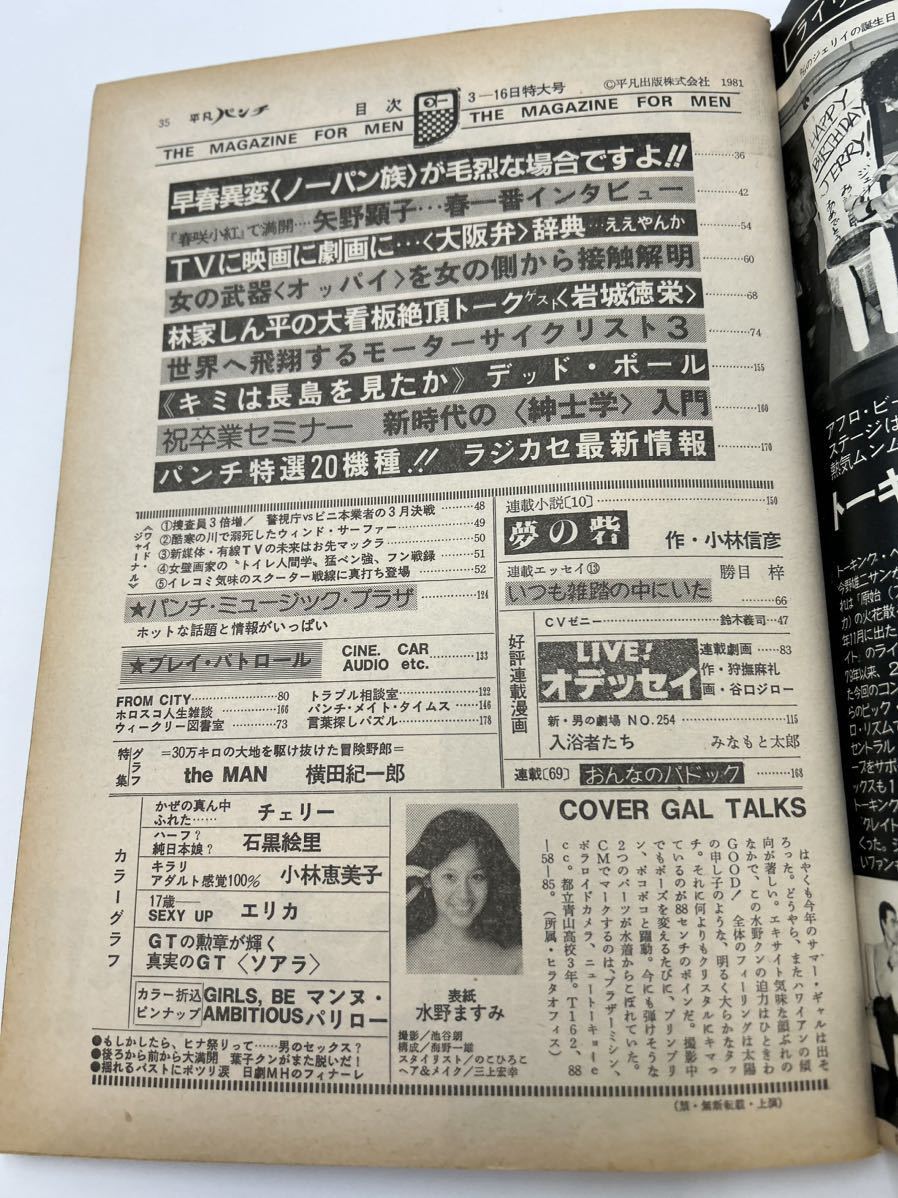 35 平凡パンチ 目次 3—16日特大号 ©平凡出版株式会社 1981
THE MAGAZINE FOR MEN THE MAGAZINE FOR MEN
早春異変〈ノーパン族〉が毛烈な場合ですよ!! 36
『春咲小紅』で満開…矢野顕子…春一番インタビュー 42
TVに映画に劇画に…〈大阪弁〉辞典…ええやんか 54
女の武器〈オッパイ〉を女の側から接触解明 60
林家しん平の大看板絶頂トークゲスト〈岩城徳栄〉 68
世界へ飛翔するモーターサイクリスト3 74
《キミは長島を見たか》デッド・ボール 155
祝卒業セミナー 新時代の〈紳士学〉入門 160
パンチ特選20機種!! ラジカセ最新情報 170
《ワイド・ジャーナル》
①捜査員3倍増/ 警視庁vsビニ本業者の3月決戦 48
②酷寒の川で溺死したウィンド・サーファー 49
③新媒体・有線TVの未来はお先マックラ 50
④女壁画家の〝トイレ人間学〟猛ペン強、フン戦録 51
⑤イレコミ気味のスクーター戦線に真打ち登場 52
★パンチ・ミュージック・プラザ 124
ホットな話題と情報がいっぱい
★プレイ・パトロール CINE. CAR AUDIO etc. 133
FROM CITY 80
ホロスコ人生雑談 166
ウィークリー図書室 73
トラブル相談室 122
パンチ・メイト・タイムス 146
言葉探しパズル 178
グラフ特集
=30万キロの大地を駆け抜けた冒険野郎=
the MAN 横田紀一郎
連載小説〔10〕 150
夢の砦 作・小林信彦
連載エッセイ⑬ 勝目 梓
いつも雑踏の中にいた 66
好評連載漫画
CVゼニー 鈴木義司 47
LIVE!オデッセイ
連載劇画 83
作・狩撫麻礼
画・谷口ジロー
新・男の劇場 NO.254 115
入浴者たち みなもと太郎
連載〔69〕 おんなのパドック 168
カラーグラフ
かぜの真ん中ふれた…… チェリー
ハーフ?純日本娘? 石黒絵里
キラリアダルト感覚100% 小林恵美子
17歳—SEXY UP エリカ
GTの勲章が輝く
真実のGT〈ソアラ〉
カラー折込ピンナップ GIRLS, BE AMBITIOUS マンヌ・バリロー
●もしかしたら、ヒナ祭りって……男のセックス?
●後ろから前から大満開 葉子クンがまた脱いだ!
●揺れるバストにポツリ涙 日劇MHのフィナーレ
表紙
水野ますみ
撮影/池谷朗
構成/海野一雄
スタイリスト/のこひろこ
ヘア&メイク/三上宏幸
COVER GAL TALKS
はやくも今年のサマー・ギャルは出そ
ろった。どうやら、またハワイアンの傾
向が著しい。エキサイト気味な顔ぶれの
なかで、この水野クンの迫力はひときわ
GOOD! 全体のフィーリングは太陽
の申し子のような、明るく大らかなタッ
チ。それに何よりもクリスタルにキマっ
ているのが88センチのボインだ。撮影中
でもポーズを変えるたびに、プリンプリ
ン、ポコポコと躍動。今にも弾けそうな
2つのパーツが水着からこぼれていた。
CMでマークするのは、ブラザーミシン、
ポラロイドカメラ、ニュートーキョーe
cc。都立青山高校3年。T162、88
—58—85。(所属・ヒラタオフィス)
(禁・無断転載・上演)
ライヴ
のジェリイの誕生日
HAPPY
BIRTHDAY
JERRY!
アフロ・ビー
ステージは
熱気ムンム
トーキ
トーキング・ヘ
今野雄二サンが
れは「原始(フ
カ)の火花散
年11月に出た
イト』のライ
た今回のコン
らのビック
ロ・リズムで
セントラル
ープをサポ
ックスも1
トーキング
『クレイト
くった。シ
いファンキ